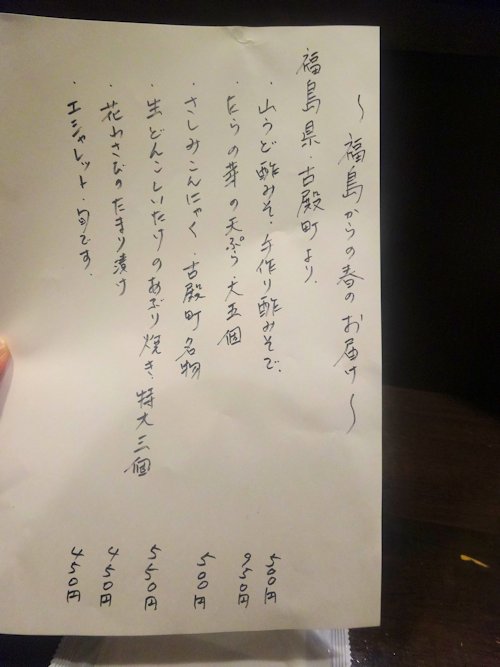 〜福島からの春のお届け〜
福島県・古殿町より.
・山うど酢みそ.手作り酢みそで. 500円
・たらの芽の天ぷら.大五個 950円
・さしみこんにゃく.古殿町名物 500円
・生どんこしいたけのあぶり焼き.特大三個 550円
・花わさびのたまり漬け 450円
・エシャレット・旬です. 450円